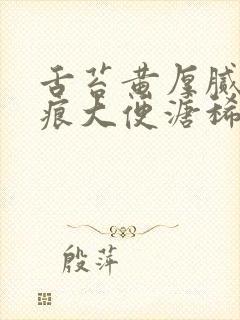 舌苔黄厚腻
痕大便溏稀
殷萍